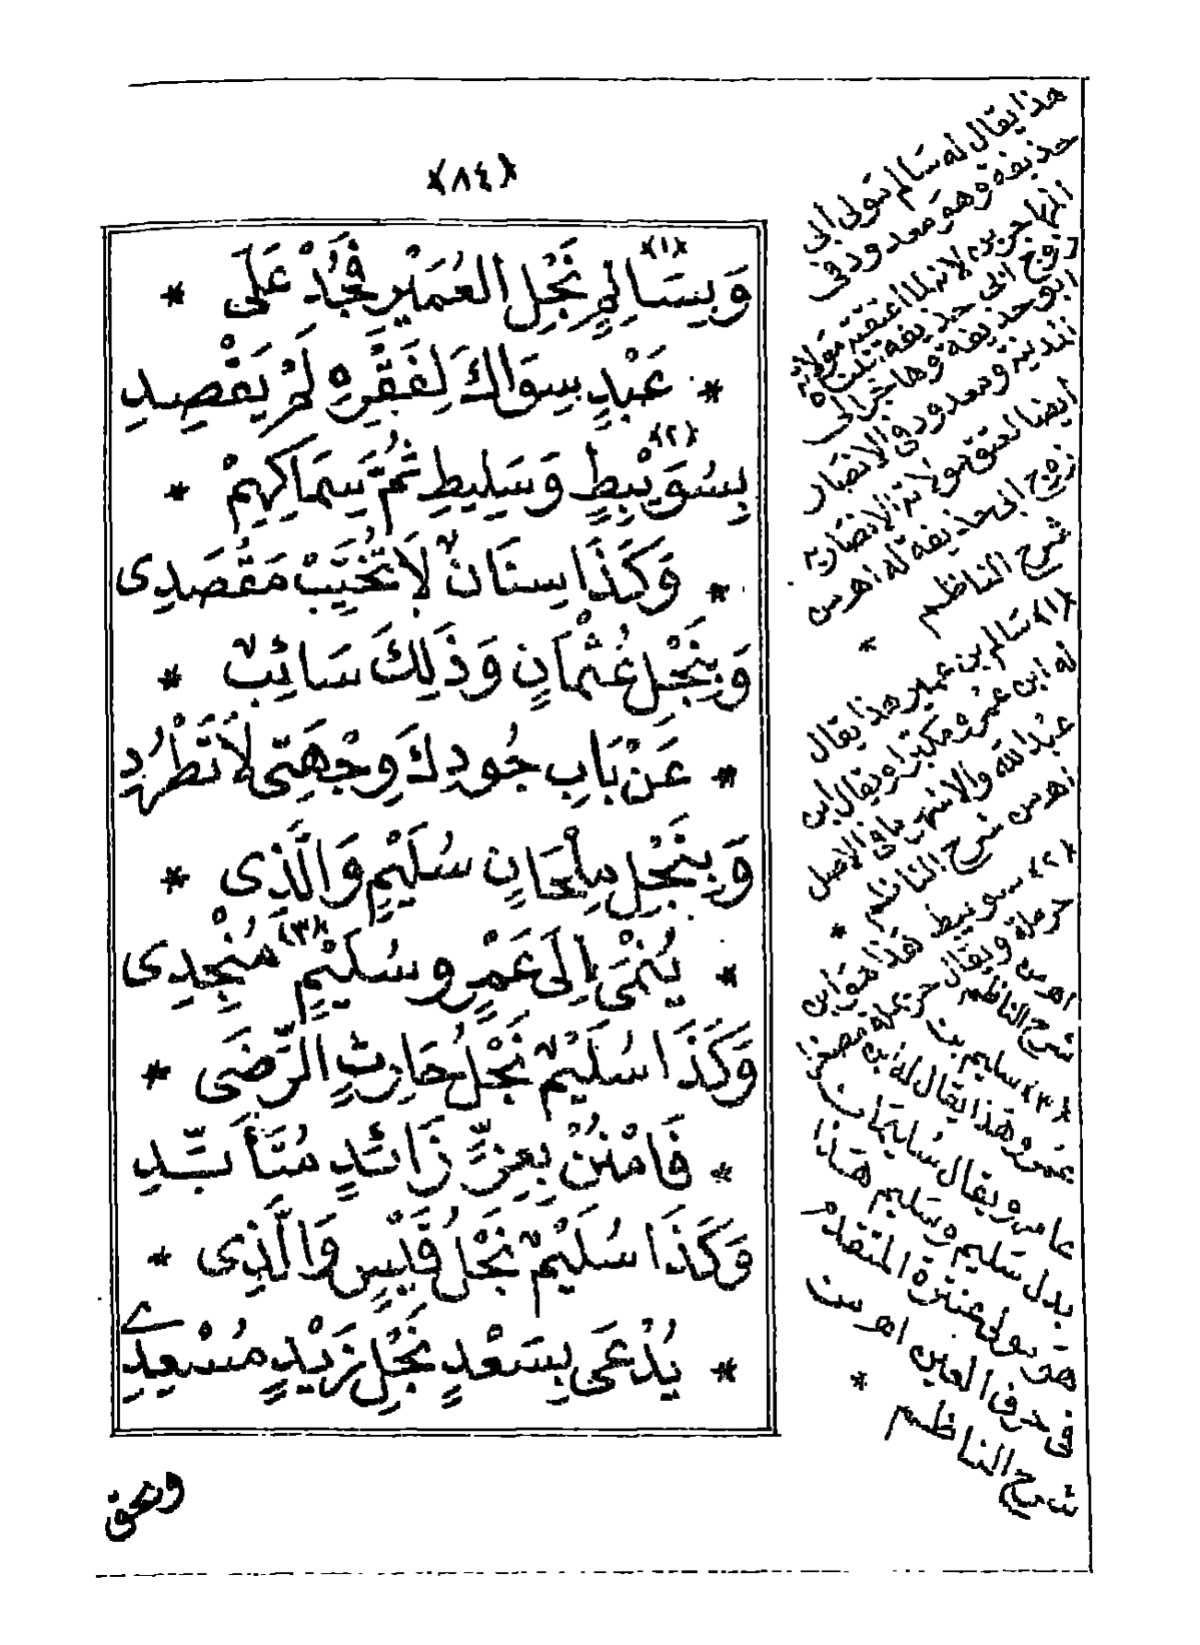 ﴿٨٤﴾
وَبِسَالِمٍ (١) نَجْلِ العُمَيْرِ فَجُدْ عَلَى *
* عَبْدٍ سِوَاكَ لِفَقْرِهِ لَمْ يَقْصِدِ
بِسُوَيْبِطٍ (٢) وَسَلِيطِ ثُمَّ سِمَاكِهِمْ *
* وَكَذَا سِنَانٌ لَا تُخَيِّبْ مَقْصَدِى
وَبِنَجْلِ عُثْمَانٍ وَذَلِكَ سَائِبٌ *
* عَنْ بَابِ جُودِكَ وِجْهَتِى لَا تَطْرُدِ
وَبِنَجْلِ مِلْحَانٍ سُلَيْمٍ وَالَّذِى *
* يُنْمَى إِلَى عَمْرٍو سُلَيْمٍ (٣) مُنْجِدِى
وَكَذَا سُلَيْمٌ نَجْلُ حَارِثٍ الرِّضَى *
* فَامْنُنْ بِعِزٍّ زَائِدٍ مُتَأَبِّدِ
وَكَذَا سُلَيْمٌ نَجْلُ قَيْسٍ وَالَّذِى *
* يُدْعَى بِسَعْدٍ نَجْلِ زَيْدٍ مُسْعِدِ
هذا يقال له سالم مولى أبى
حذيفة وهو معدود فى
المهاجرين لانه لما أعتقته مولاته
زوج ابى حذيفة تبناه
ابو حذيفة وهاجر الى
المدينة ومعدود فى الانصار
أيضا لعتق مولاته الانصارية
زوج ابى حذيفة له اهـ من
شرح الناظم *
(١) سالم بن عمير هذا يقال
له ابن عمرو مكبرا ويقال ابن
عبد الله والاشهر ما فى الاصل
اهـ من شرح الناظم *
(٢) سويبط هذا هو ابن
حرملة ويقال حريملة
اهـ من شرح الناظم
(٣) سليم بن
عمرو هذا يقال له ابن
عامر ويقال سليمان
بدل سليم وسليم هذا
هو مولى عنترة المتقدم
فى حرف العين اهـ من
شرح الناظم *